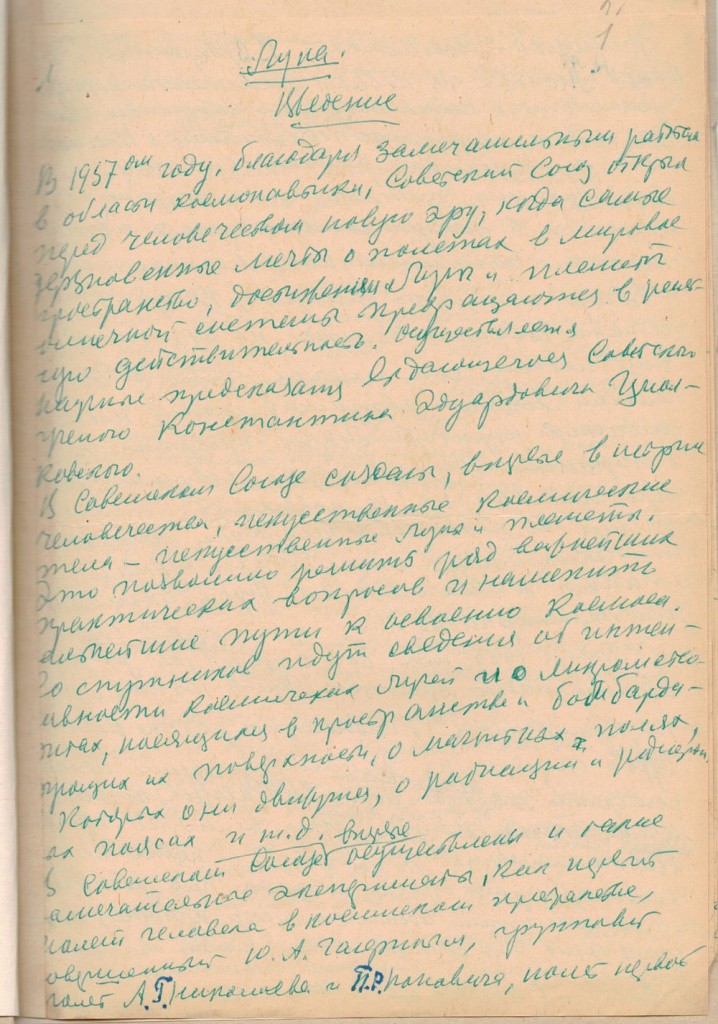 1
Луна.
Введение
В 1957ом году, благодаря замечательным работам
в области космонавтики, Советский Союз открыл
перед человечеством новую эру, когда самые
дерзновенные мечты о полетах в мировое
пространство, достижении Луны и планет
солнечной системы превращаются в реаль-
ную действительность. Осуществляется
научные предсказания выдающегося Советского
ученого Константина Эдуардовича Циол-
ковского.
В Советском Союзе созданы, впервые в истории
человечества, искусственные космические
тела – искусственные Луна и планеты.
Это позволило решить ряд важнейших
практических вопросов и наметить
дальнейшие пути к освоению Космоса.
Со спутников идут сведения об интен-
сивности космических лучей и о микрометео-
ритах, носящихся в пространстве и бомбарди-
рующих их поверхности, о магнитных полях,
в которых они движутся, о радиации и
ых поясах и т.д. впервые
В Советском Союзе осуществлены и такие
замечательные эксперименты, как первый
полет человека в космическом пространстве,
совершенный Ю.А. Гагариным, групповой
полет А.Г. Николаева и П.Р. Поповича, полет первой